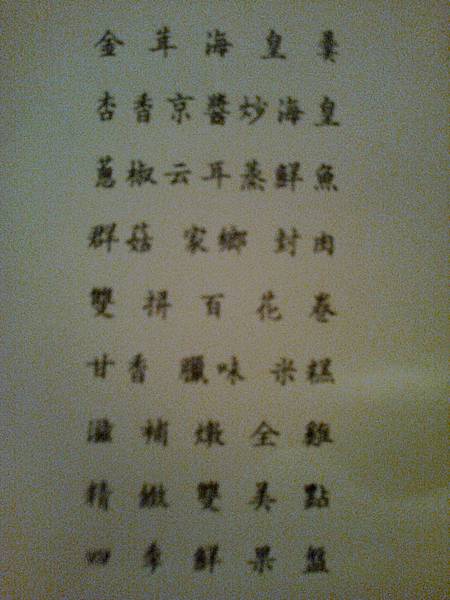 金茸海皇羹
杏香京醬炒海皇
蔥椒云耳蒸鮮魚
群菇家鄉封肉
雙拼百花卷
甘香臘味米糕
滋補燉全雞
精緻雙美點
四季鮮果盤